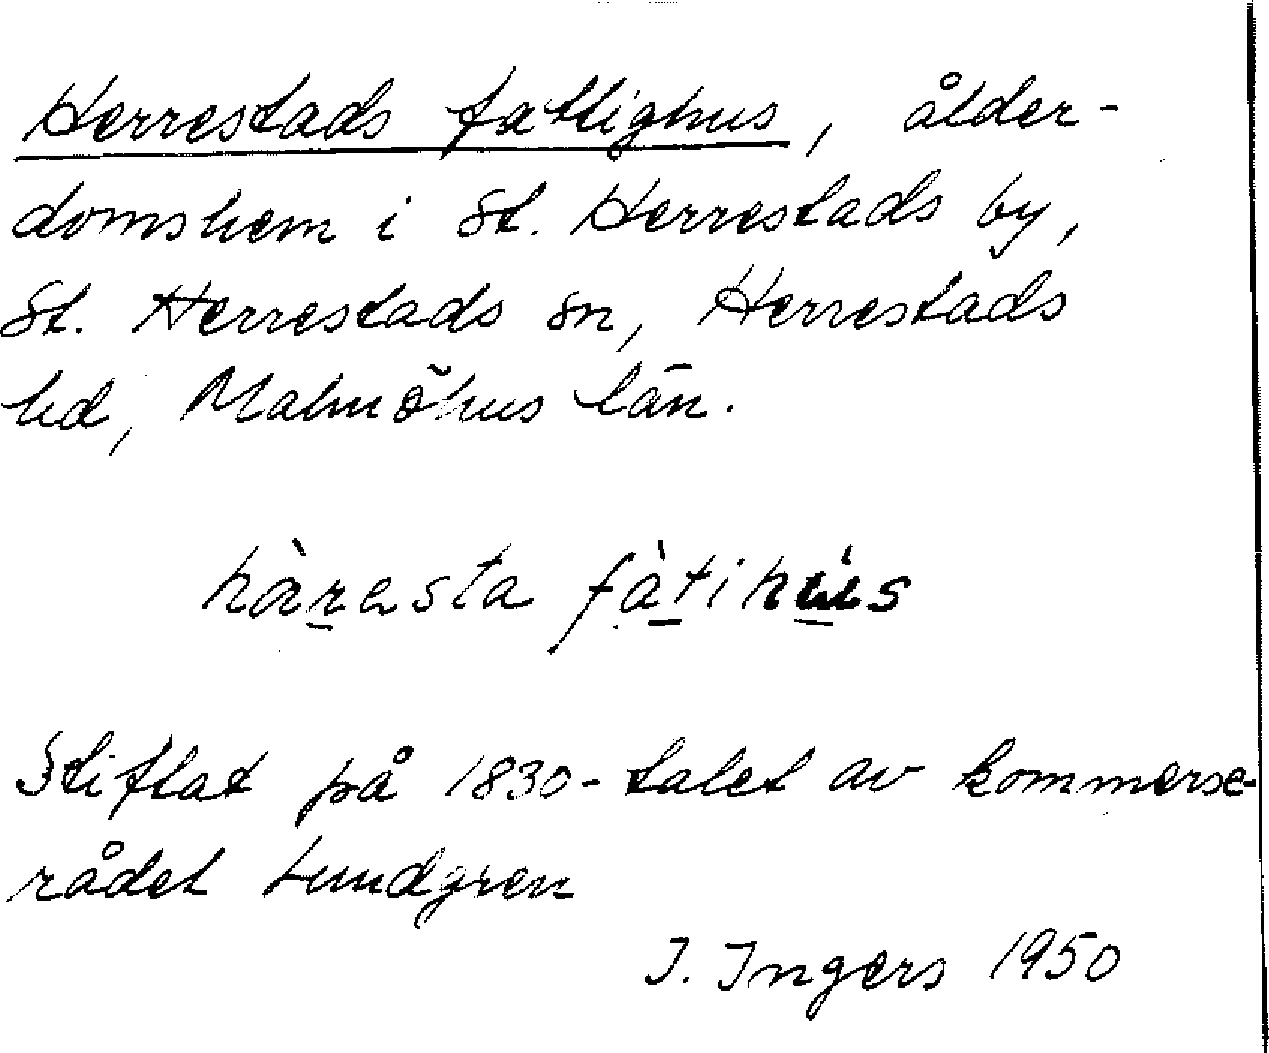 Herrestads fattighus, ålder-
domshem i St. Herrestads by,
St. Herrestads sn, Herrestads
hd, Malmöhus län.
hàr̲esta fàt̲ihú̲s
Stiftat på 1830-talet av kommerse-
rådet Lundgren
I. Ingers 1950